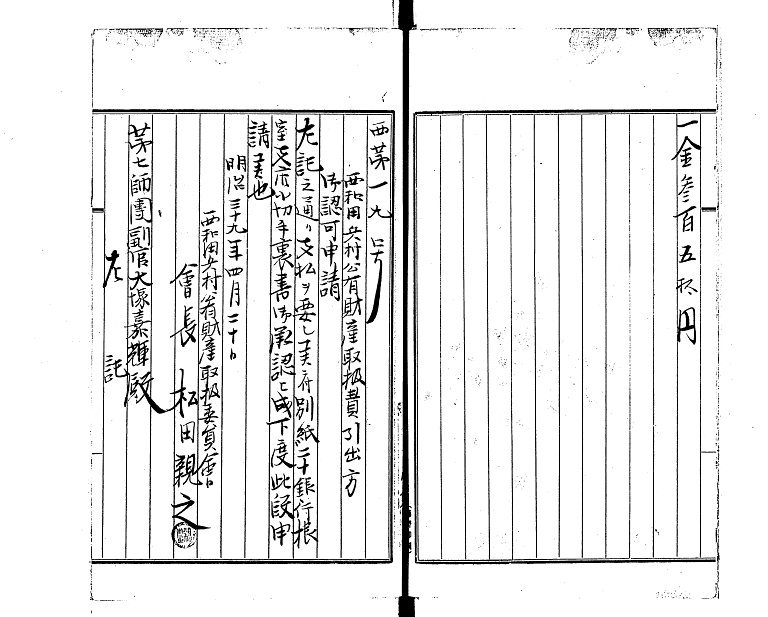 一金参百五拾円
西第一九号
西和田兵村公有財産取扱費引出方
御認可申請
左記之通リ支払ヲ要シ候付別紙二十銀行根
室支店小切手裏書御承認上成下度此段申
請候也
明治三十九年四月二十日
西和田兵村公有財産取扱委員会
會長 松田親之
第七師團副官大塚嘉輝殿
左記